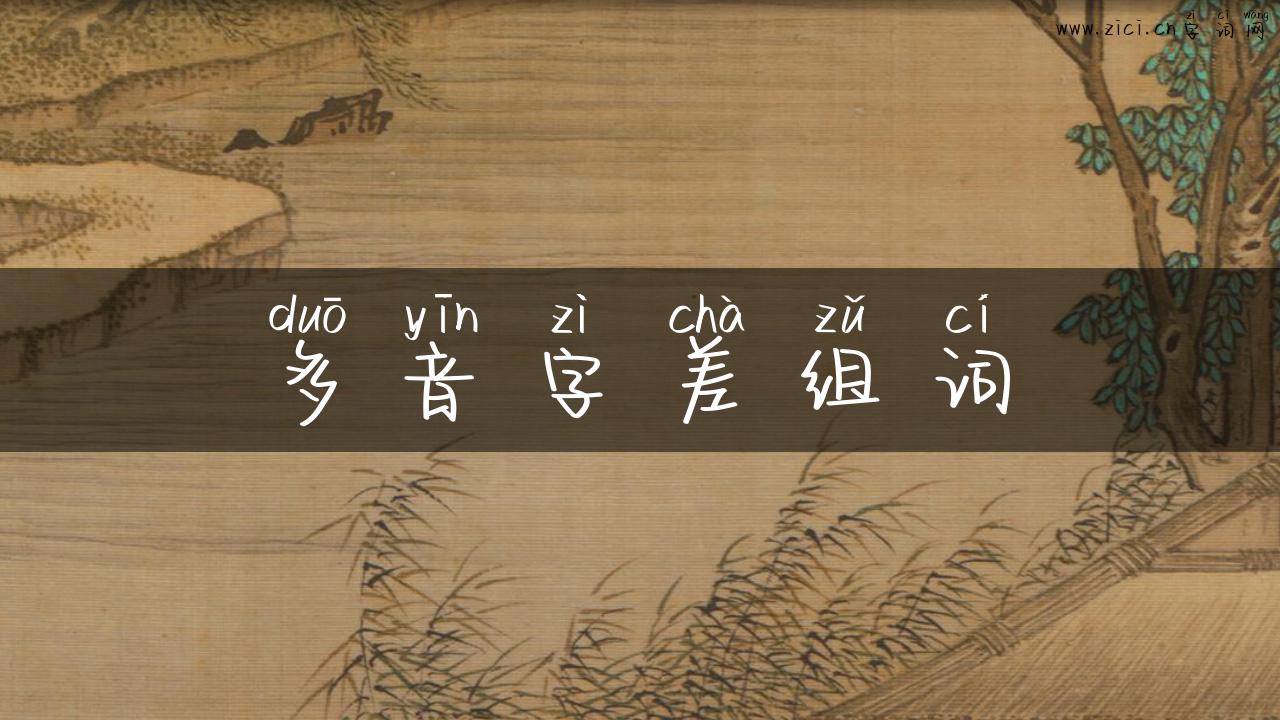 zì cí wǎng
www.zici.cn字词网
duō yīn zì chà zǔ cí
多音字差组词